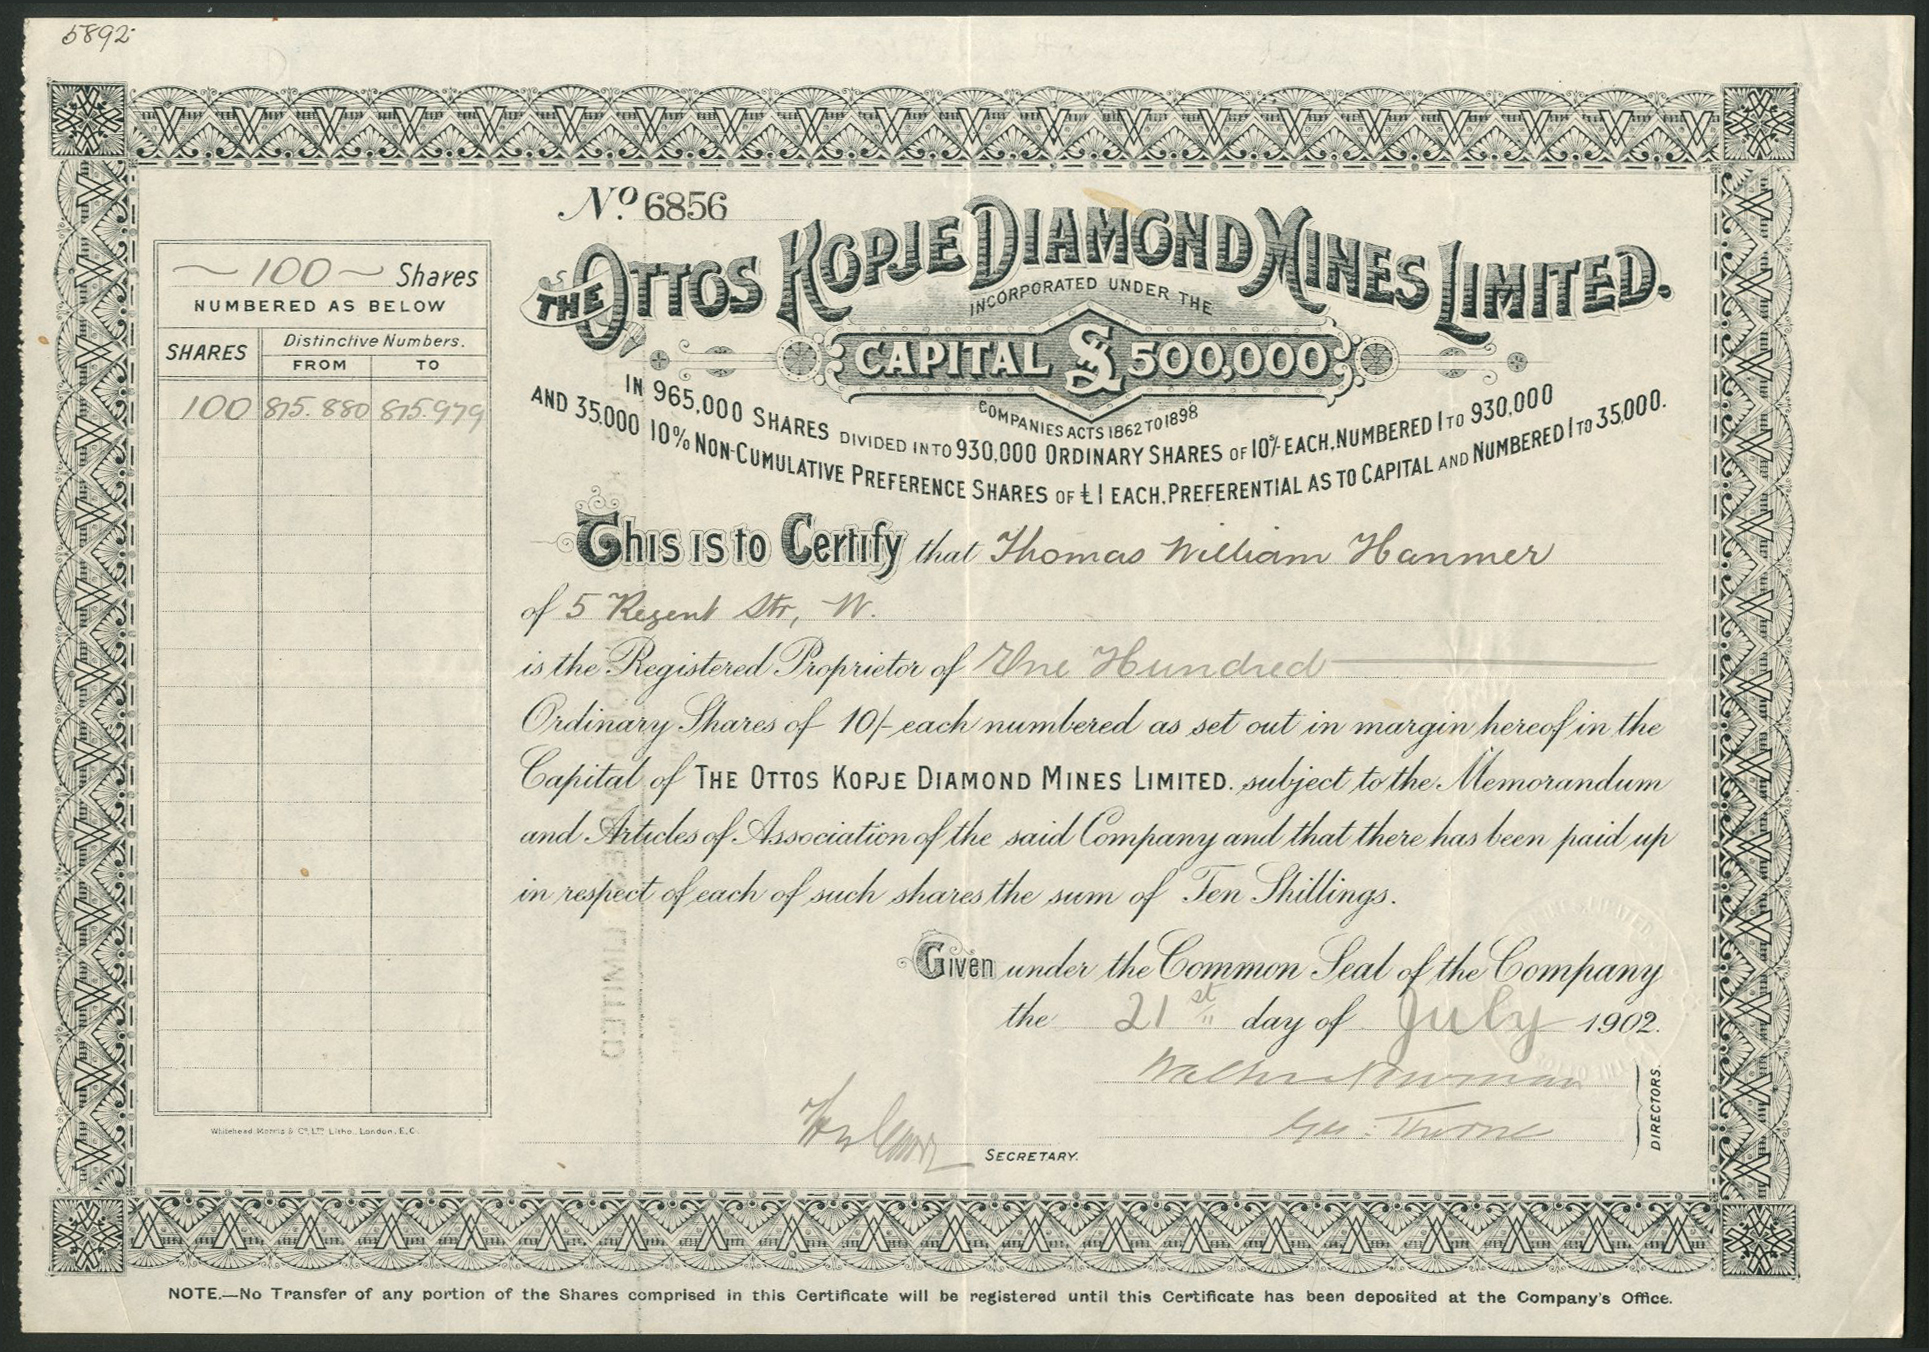 5892
No. 6856
THE OTTOS KOPJE DIAMOND MINES LIMITED.
INCORPORATED UNDER THE
CAPITAL £500,000
COMPANIES ACTS 1862 TO 1898
IN 965,000 SHARES DIVIDED INTO 930,000 ORDINARY SHARES OF 10/- EACH, NUMBERED 1 TO 930,000
AND 35,000 10% NON-CUMULATIVE PREFERENCE SHARES OF £1 EACH, PREFERENTIAL AS TO CAPITAL AND NUMBERED 1 TO 35,000.
~ 100 ~ Shares
NUMBERED AS BELOW
SHARES Distinctive Numbers.
FROM TO
100 875.880 875.979
This is to Certify that Thomas William Hanmer
of 5 Regent Str, W.
is the Registered Proprietor of One Hundred
Ordinary Shares of 10/- each numbered as set out in margin hereof in the
Capital of THE OTTOS KOPJE DIAMOND MINES LIMITED. subject to the Memorandum
and Articles of Association of the said Company and that there has been paid up
in respect of each of such shares the sum of Ten Shillings.
Given under the Common Seal of the Company
the 21st day of July 1902.
DIRECTORS.
SECRETARY.
Whitehead Morris & Co. Ltd. Litho. London, E.C.
NOTE.—No Transfer of any portion of the Shares comprised in this Certificate will be registered until this Certificate has been deposited at the Company's Office.